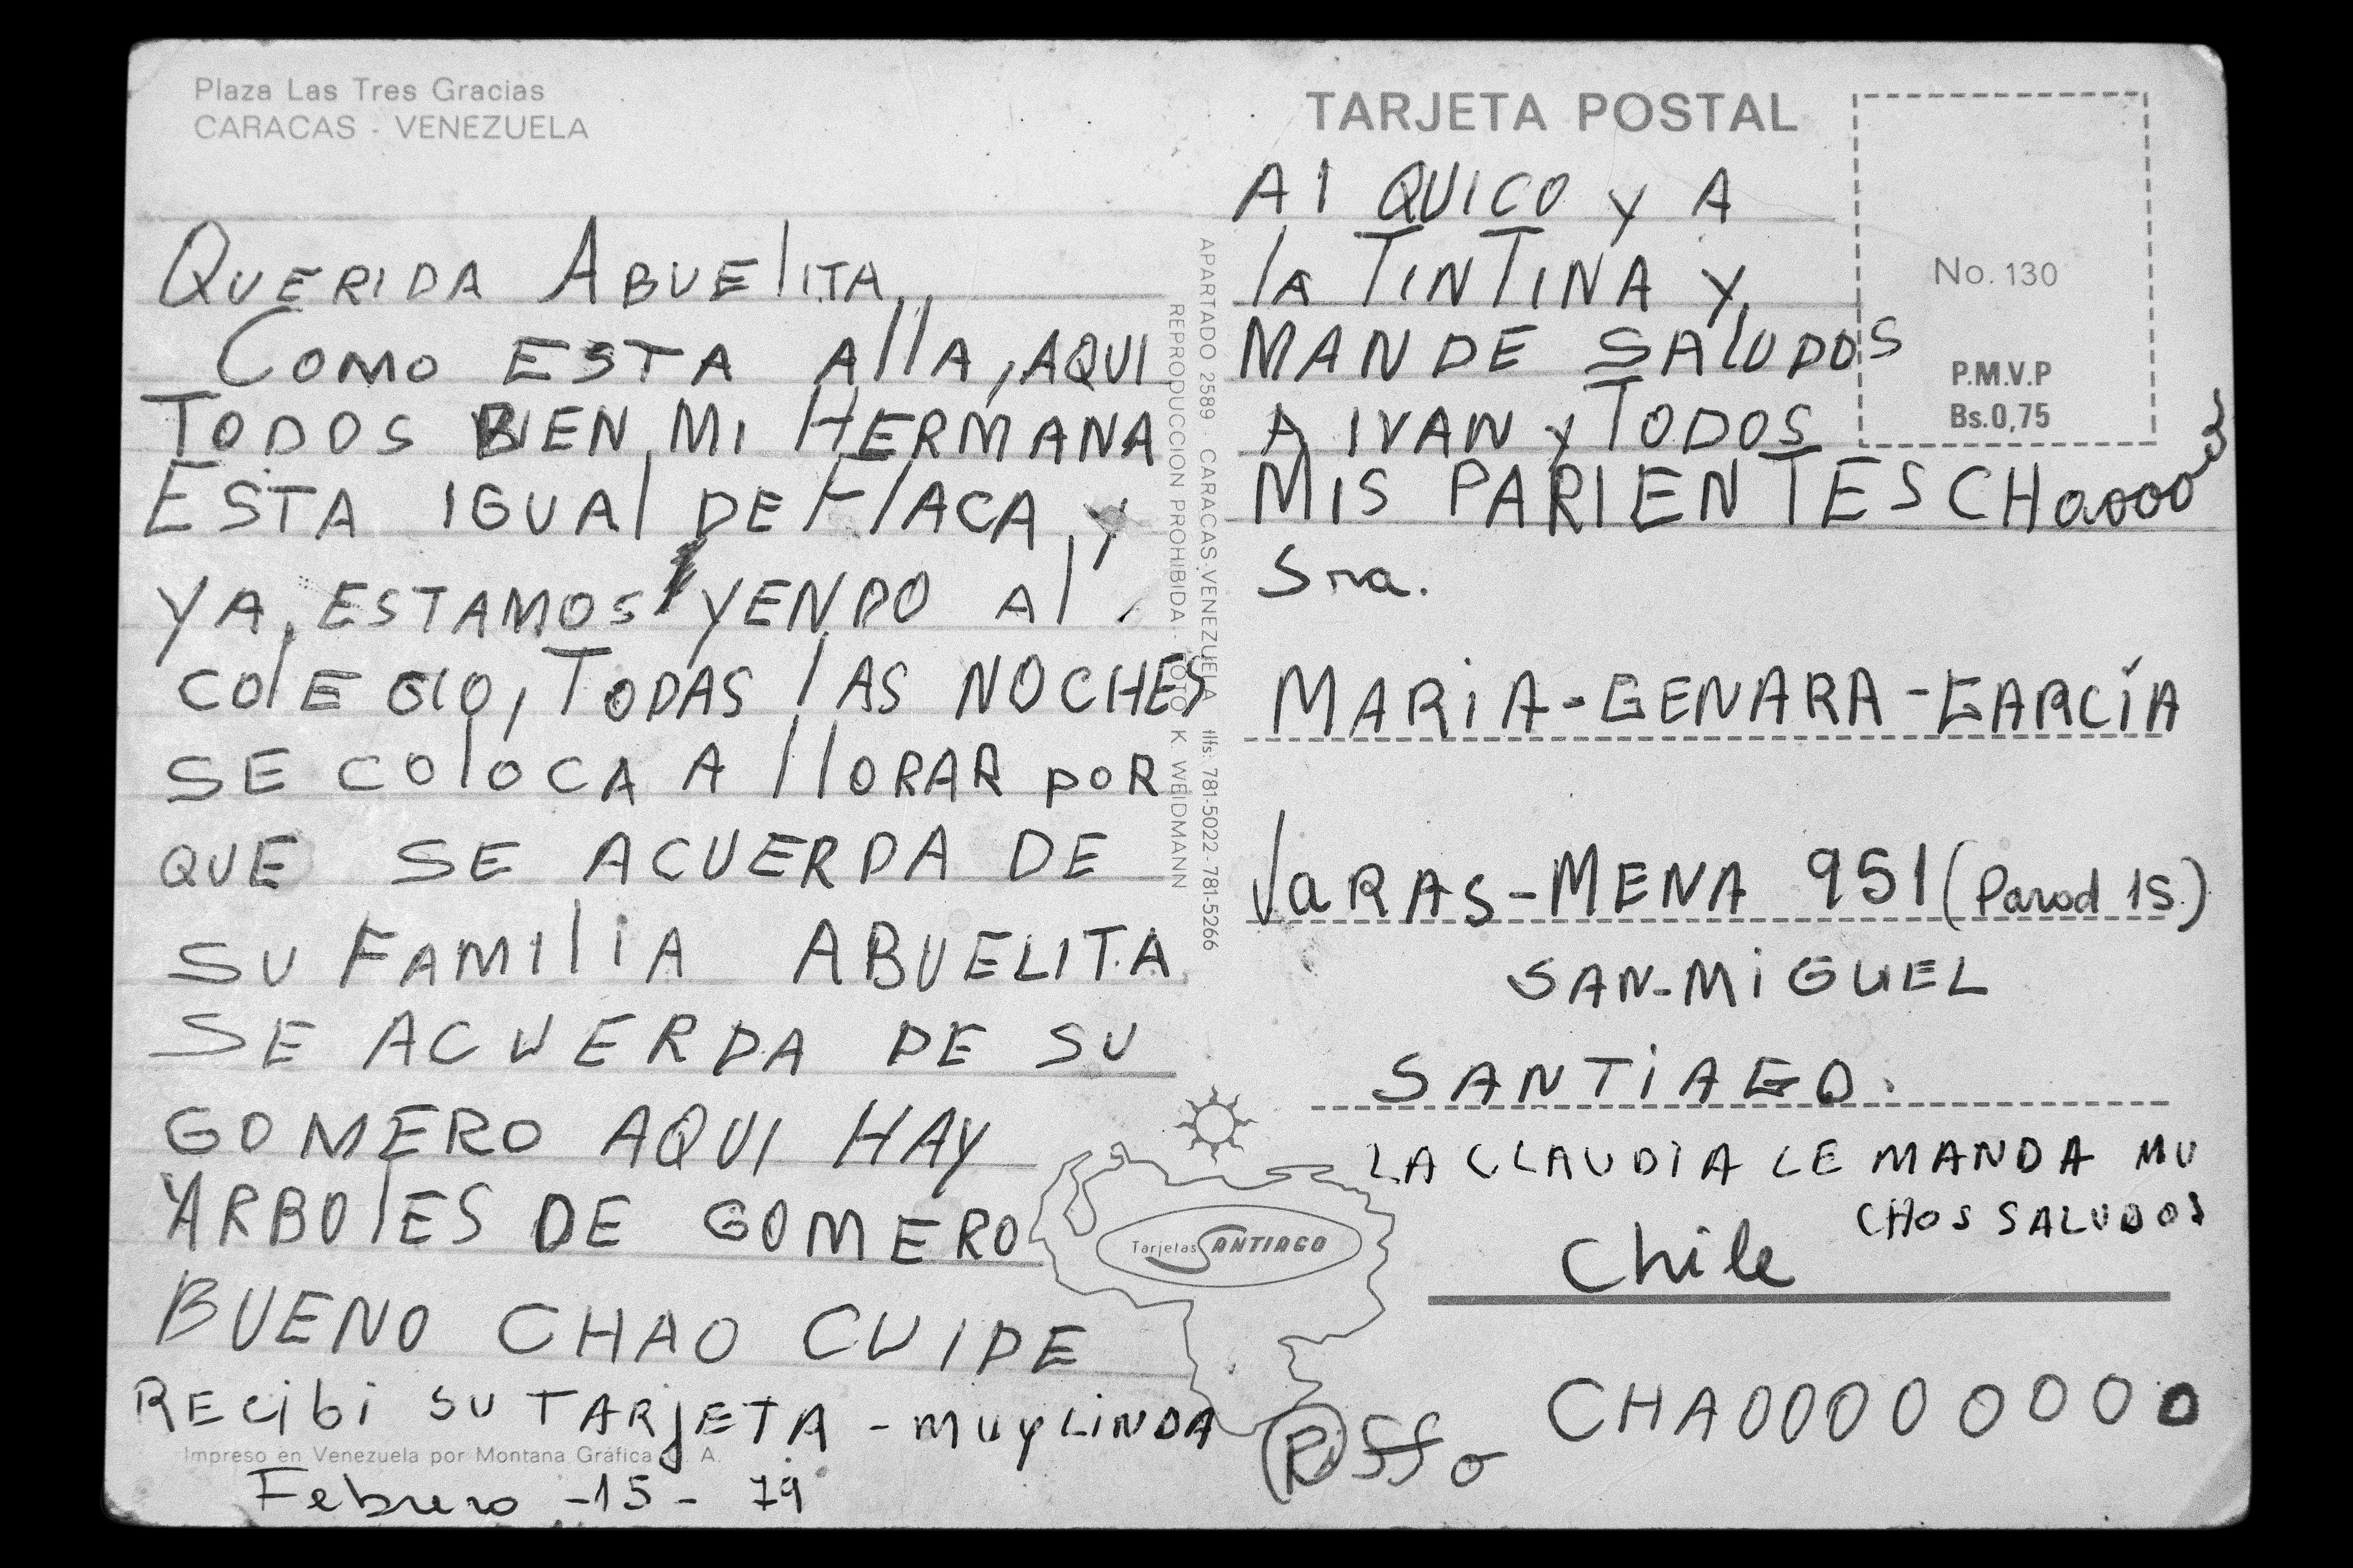 Plaza Las Tres Gracias
CARACAS - VENEZUELA
QUERIDA ABUElITA,
COMO ESTA AllA, AQUI
TODOS BIEN, MI HERMANA
ESTA IGUAl DE FlACA, y
YA, ESTAMOS YENDO Al
COlEGIO, TODAS lAS NOCHES
SE COlOCA A llORAR poR
QUE SE ACUERDA DE
SU FAMIliA ABUELITA
SE ACUERDA DE SU
GOMERO AQUI HAY
ARBOlES DE GOMERO
BUENO CHAO CUIDE
RECibi SU TARjETA - MUY LiNDA
Impreso en Venezuela por Montana Gráfica C. A.
Febrero -15- 79
APARTADO 2589 - CARACAS-VENEZUELA Tlfs: 781-5022-781-5266
REPRODUCCION PROHIBIDA - FOTO K. WEIDMANN
TARJETA POSTAL
Al QUICO y A
lA TINTINA y
MANDE SAlUDOS
A IVAN y TODOS
MIS PARIENTES CHaooo
No. 130
P.M.V.P
Bs.0,75
Sra.
MARiA-GENARA-GARCÍA
VaRAS-MENA 951 (Parad 15)
SAN-MiGUEL
SANTiAGO.
LA CLAUDiA LE MANDA MU
CHOS SALUDOS
Chile
Tarjetas SANTIAGO
CHAOOOOOOOO